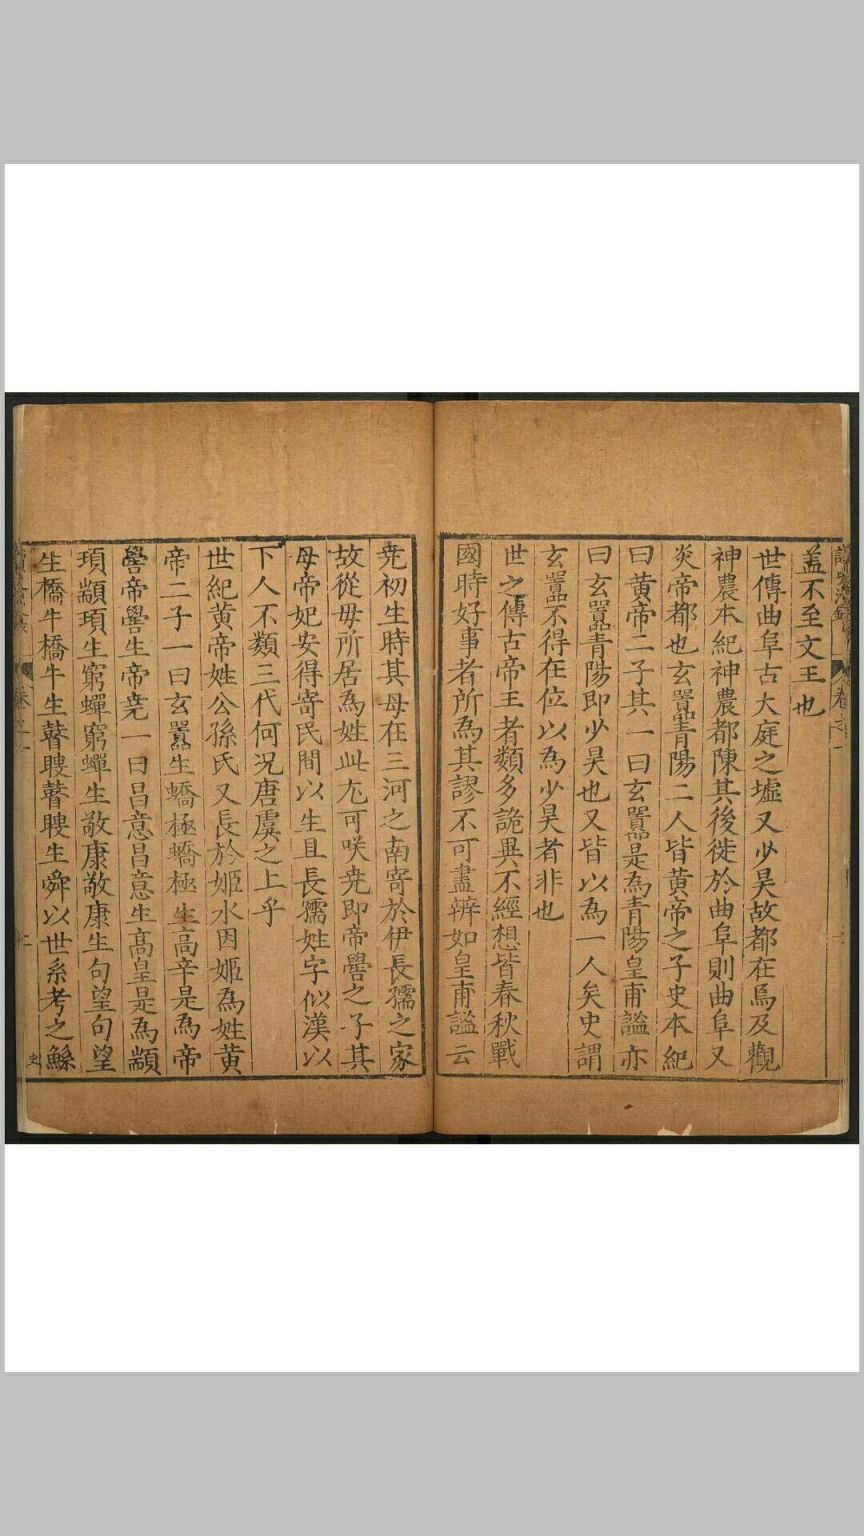 盖不至文王也
世傳曲阜古大庭之墟又少昊故都在焉及觀
神農本紀神農都陳其後徙於曲阜則曲阜又
炎帝都也玄囂青陽二人皆黃帝之子史本紀
曰黃帝二子其一曰玄囂是為青陽皇甫謐亦
曰玄囂青陽即少昊也又皆以為一人矣史謂
玄囂不得在位以為少昊者非也
世之傳古帝王者類多詭異不經想皆春秋戰
國時好事者所為其謬不可盡辨如皇甫謐云
堯初生時其母在三河之南寄於伊長孺之家
故從母所居為姓此尤可咲堯即帝嚳之子其
母帝妃安得寄民間以生且長孺姓字似漢以
下人不類三代何况唐虞之上乎
世紀黃帝姓公孫氏又長於姬水因姬為姓黃
帝二子一曰玄囂生蟜極蟜極生高辛是為帝
嚳帝嚳生帝堯一曰昌意昌意生高皇是為顓
頊顓頊生窮蟬窮蟬生敬康敬康生句望句望
生橋牛橋牛生瞽瞍瞽瞍生舜以世系考之鯀
史